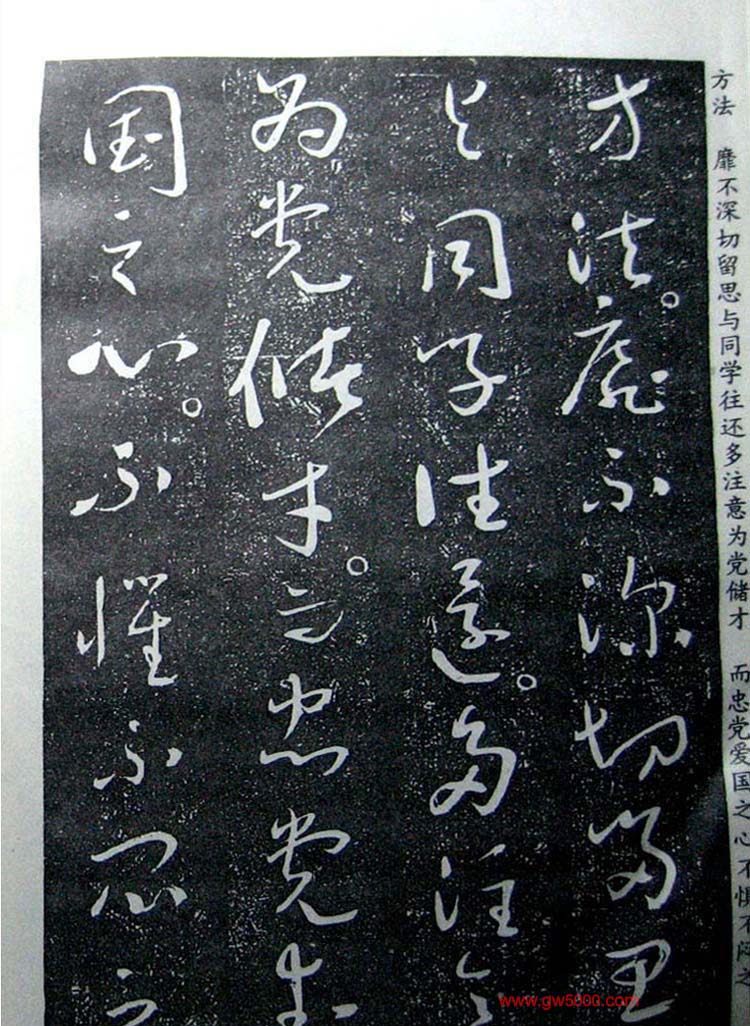 方法 靡不深切留思与同学往还多注意为党储才 而忠党爱国之心不惧不闷之
方法。靡不深切留思
与同学往还。多注意
为党储才。而忠党爱
国之心。不惧不闷之
www.gw5000.com